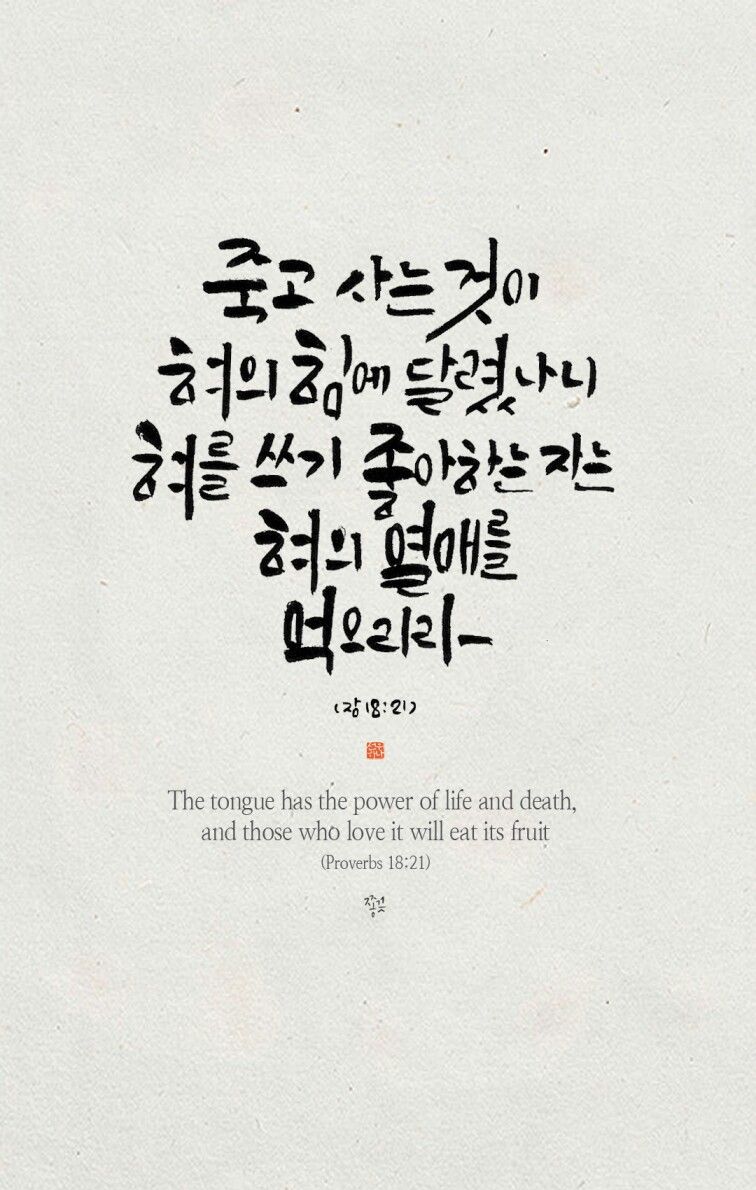 죽고 사는것이
혀의 힘에 달렸나니
혀를 쓰기 좋아하는 자는
혀의 열매를
먹으리라-
(잠 18:21)
The tongue has the power of life and death,
and those who love it will eat its fruit
(Proverbs 18:21)